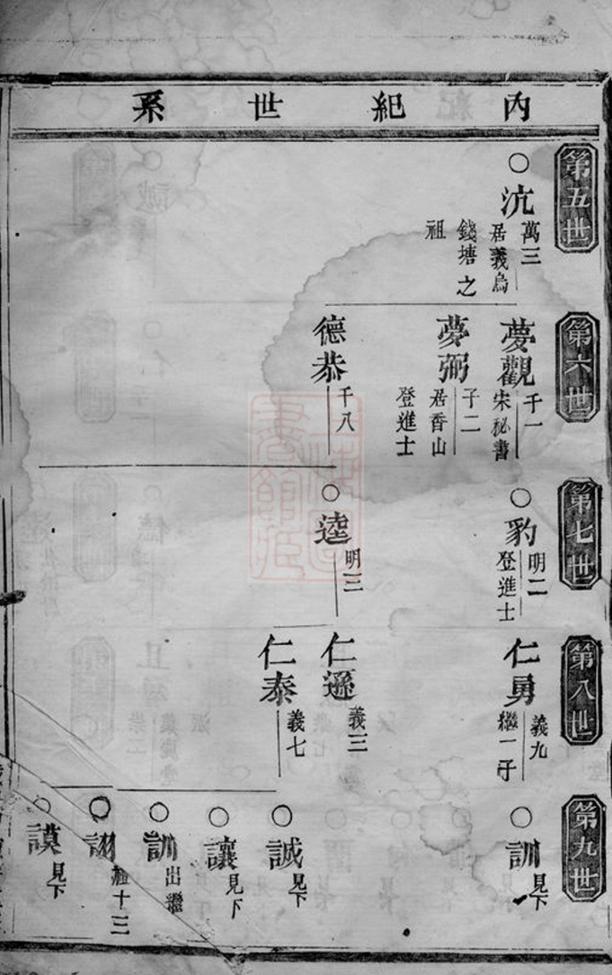 內紀世系
第五世
沆
萬三
居義烏
錢塘之
祖
第六世
夢觀
千一
宋秘書
夢弼
子二
居香山
登進士
德恭
千八
第七世
豹
明二
登進士
逵
明三
第八世
仁勇
義九
繼一子
仁遜
義三
仁泰
義七
第九世
訓
見下
誠
見下
讓
見下
訓
出繼
十三
謨
見下